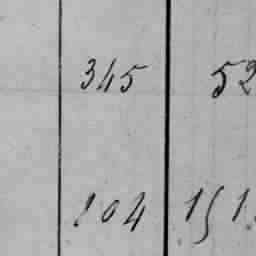 345 52
104 151